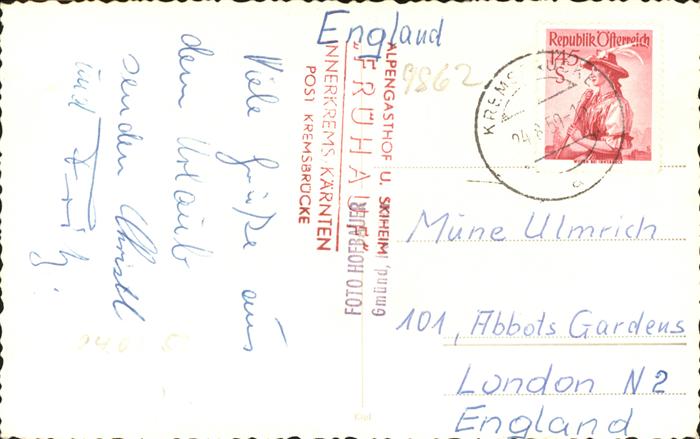 England
Viele Grüße aus
dem Urlaub
senden Christl
und Fritz.
ALPENGASTHOF U. SKIHEIM
„FRÜHAUF"
INNERKREMS, KÄRNTEN
POST KREMSBRÜCKE
FOTO HOFBAUER
Gmünd,
9862
Republik Österreich
1.45
S
KREMS
24.8.59
Müne Ulmrich
101, Abbots Gardens
London N2
England